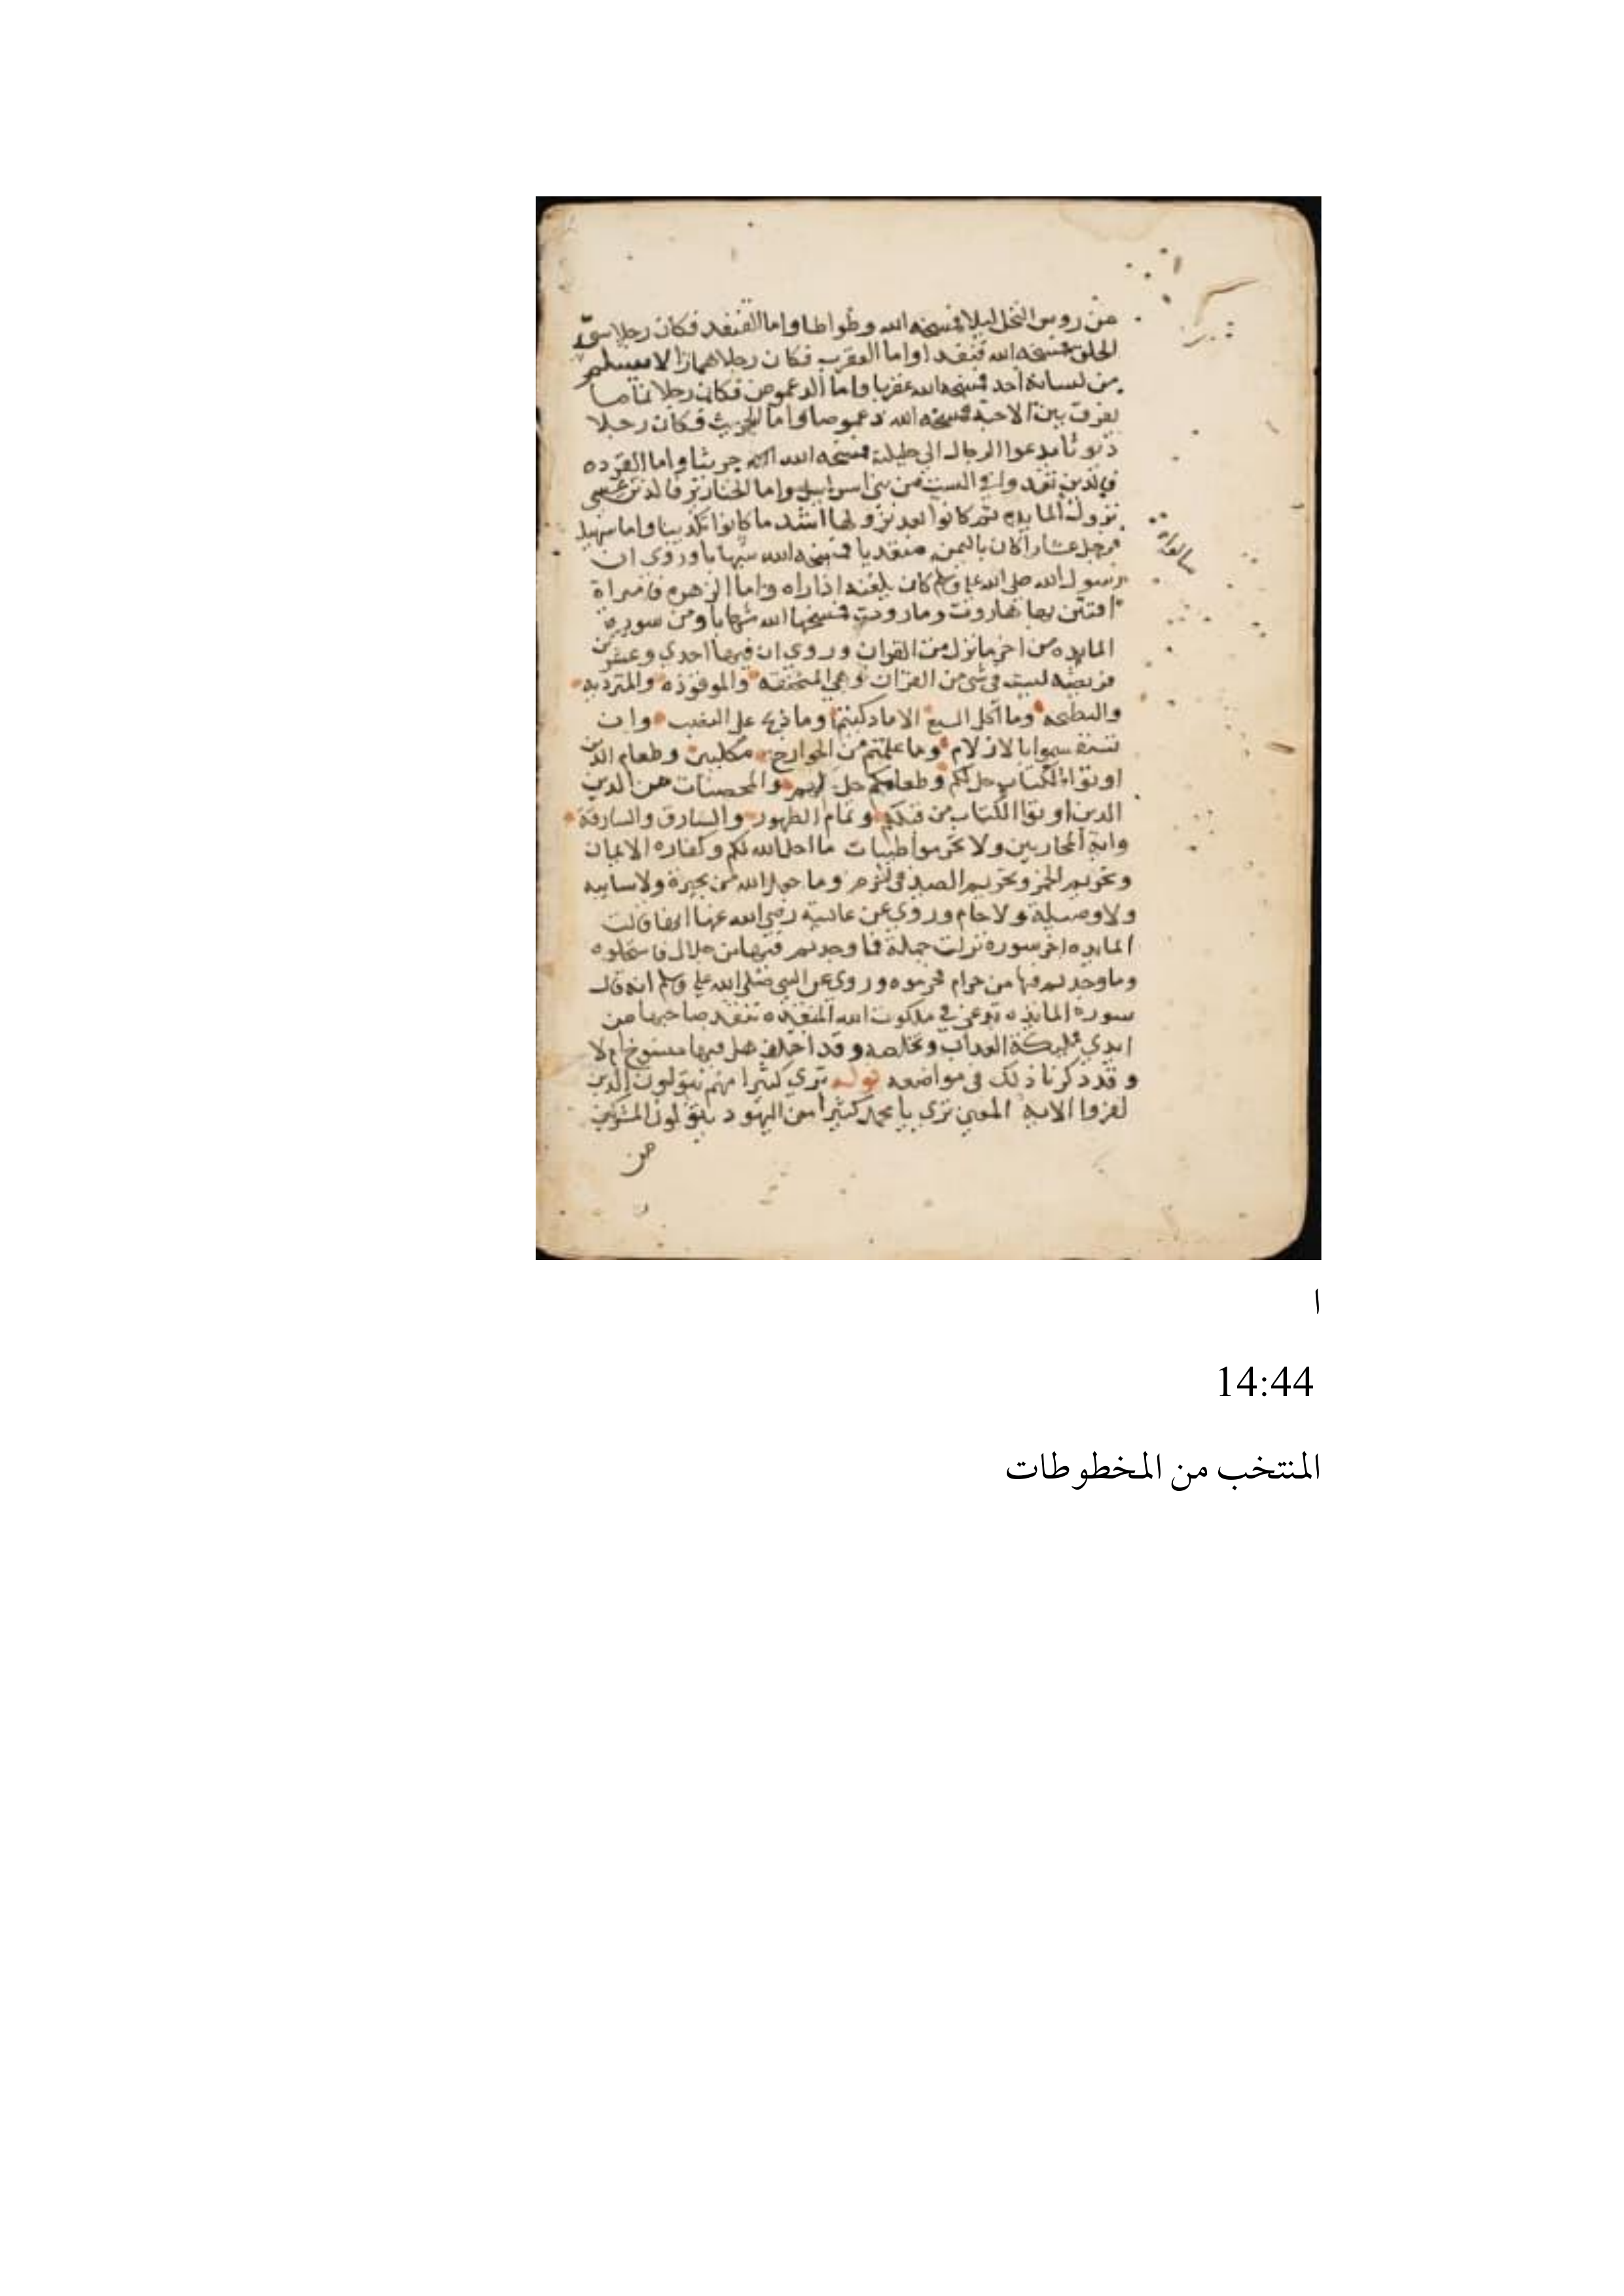 من روس النخل ليلا فمسخه الله وطواطا واما القنفد فكان رجلا سيّ
الخلق فمسخه الله قنفدا واما العقرب فكان رجلا همازا لا يسلم
من لسانه احد فمسخه الله عقربا واما الدعموص فكان رجلا نماما
يفرق بين الاحبة فمسخه الله دعموصا واما الجريث فكان رجلا
ديوثا يدعوا الرجال الي حليلته فمسخه الله جريثا واما القرده
فالذين تعدوا في السبت من بني اسراييل واما الخنازير فالذين عيسى
نزول المايده ثم كانوا بعد نزولها اشد ما كانوا تكذيبا واما سهيل
فرجل عشارا كان باليمن متعديا فمسخه الله شهابا وروى ان
رسول الله صلى الله عليه وسلم كان يلعنه اذا راه واما الزهره فامراة
افتتن بها هاروت وماروت فمسخها الله شهابا ومن سورة
المايده من اخر ما نزل من القران وروي ان فيها احدي وعشرين
فريضه ليست في شي من القران وهي المنخنقه والموقوذه والمترديه
والنطيحه وما اكل السبع الا ما ذكيتم وما ذبح على النصب وان
تستقسموا بالازلام وما علمتم من الجوارح مكلبين وطعام الذين
اوتوا الكتاب حل لكم وطعامكم حل لهم والمحصنات من الذين
الذين اوتوا الكتاب من قبلكم وتمام الطهور والسارق والسارقة
واية المحاربين ولا تحرموا طيبات ما احل الله لكم وكفاره الايمان
وتحريم الخمر وتحريم الصيد في الحرم وما جعل الله من بحيرة ولا سايبه
ولا وصيلة ولا حام وروي عن عايشه رضي الله عنها انها قالت
المايده اخر سورة نزلت جملة فما وجدتم فيها من حلال فاستحلوه
وما وجدتم فيها من حرام فحرموه وروي عن النبي صلى الله عليه وسلم انه قال
سورة المايده تدعى في ملكوت الله المنقذه تنقذ صاحبها من
ايدي ملايكة العذاب وتخلصه وقد اختلف هل فيها منسوخ ام لا
وقد ذكرنا ذلك في مواضعه قوله ترى كثيرا منهم يتولون الذين
كفروا الايه المعنى ترى يا محمد كثيرا من اليهود يتولون المشركين
من
ا
14:44
المنتخب من المخطوطات